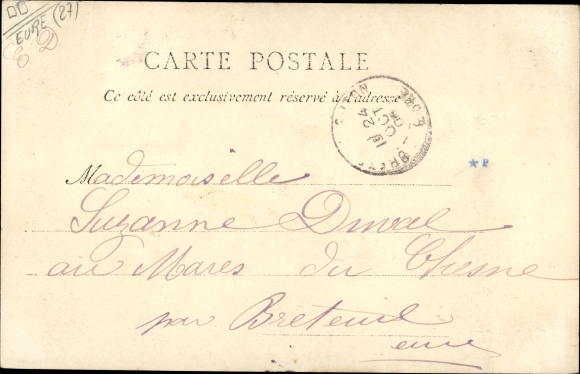 EURE (27)
CARTE POSTALE
Ce côté est exclusivement réservé à l'adresse
24
OCT
EURE
Mademoiselle
Suzanne Duval
aux Mares du Chesne
par Breteuil
eure